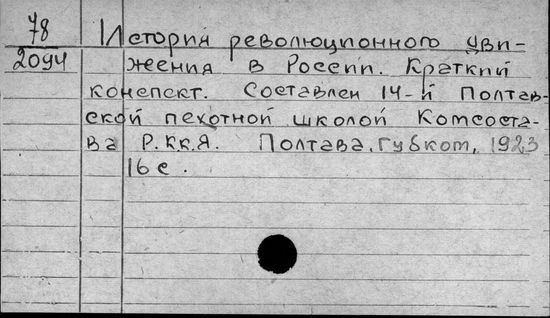 78
2094
История революционного дви-
жения в России. Краткий
конспект. Составлен 14-й Полтав-
ской пехотной школой Комсоста-
ва Р.К.К.А. Полтава, Губком, 1923
16 с.